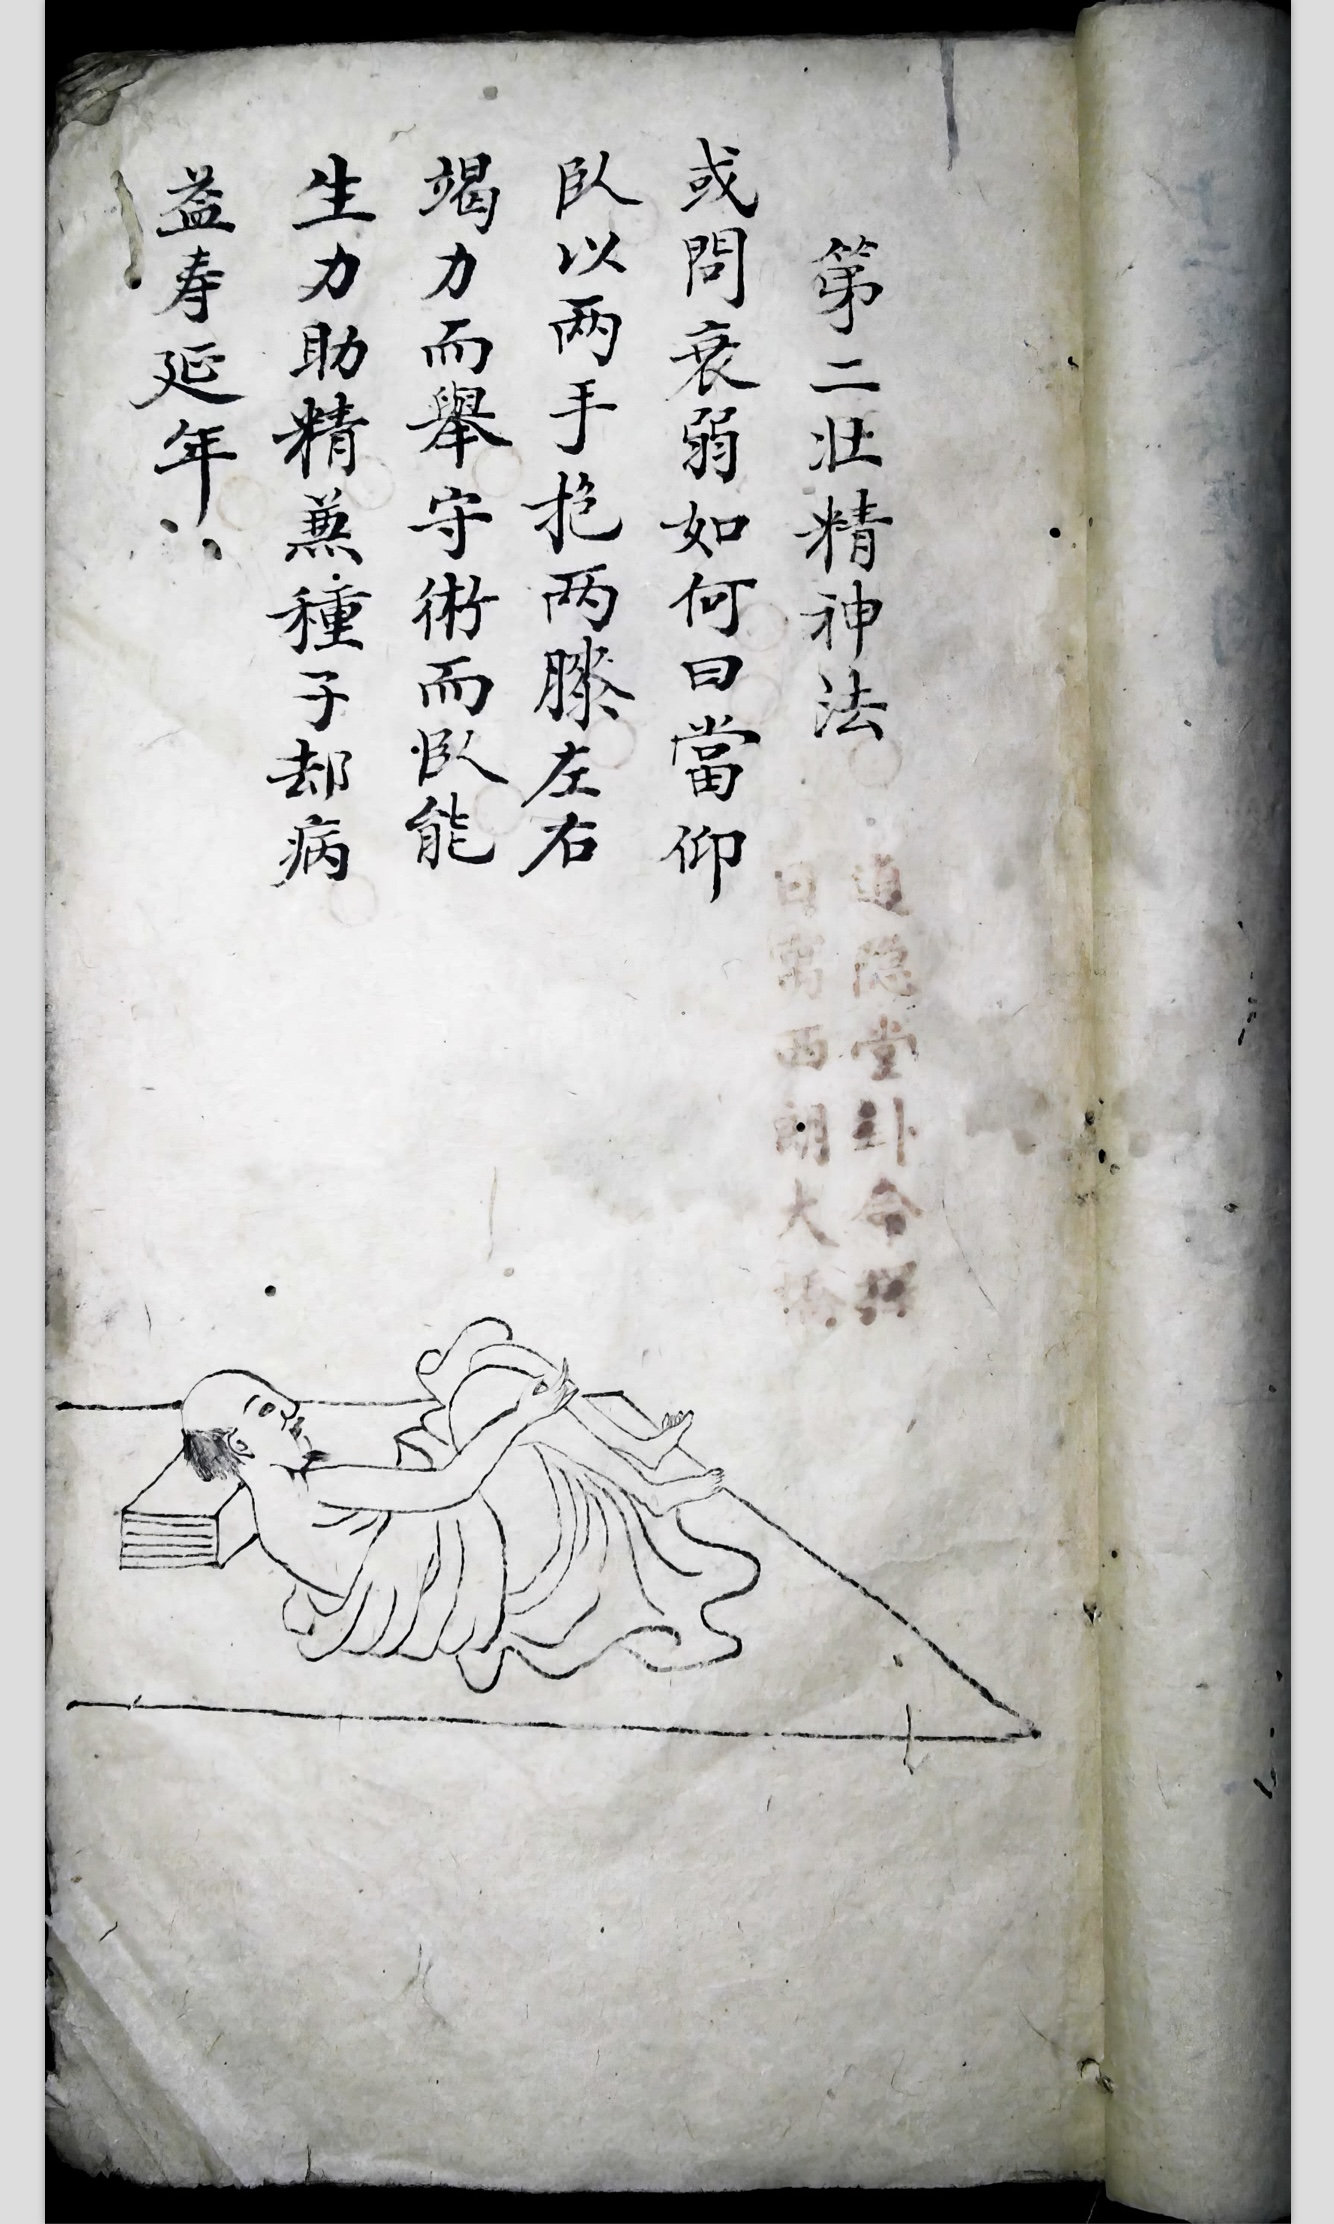 第二壯精神法
或問衰弱如何曰當仰
臥以两手抱两膝左右
竭力而舉守術而臥能
生力助精兼種子却病
益寿延年
道隐堂卦命擇
日寓西朗大橋